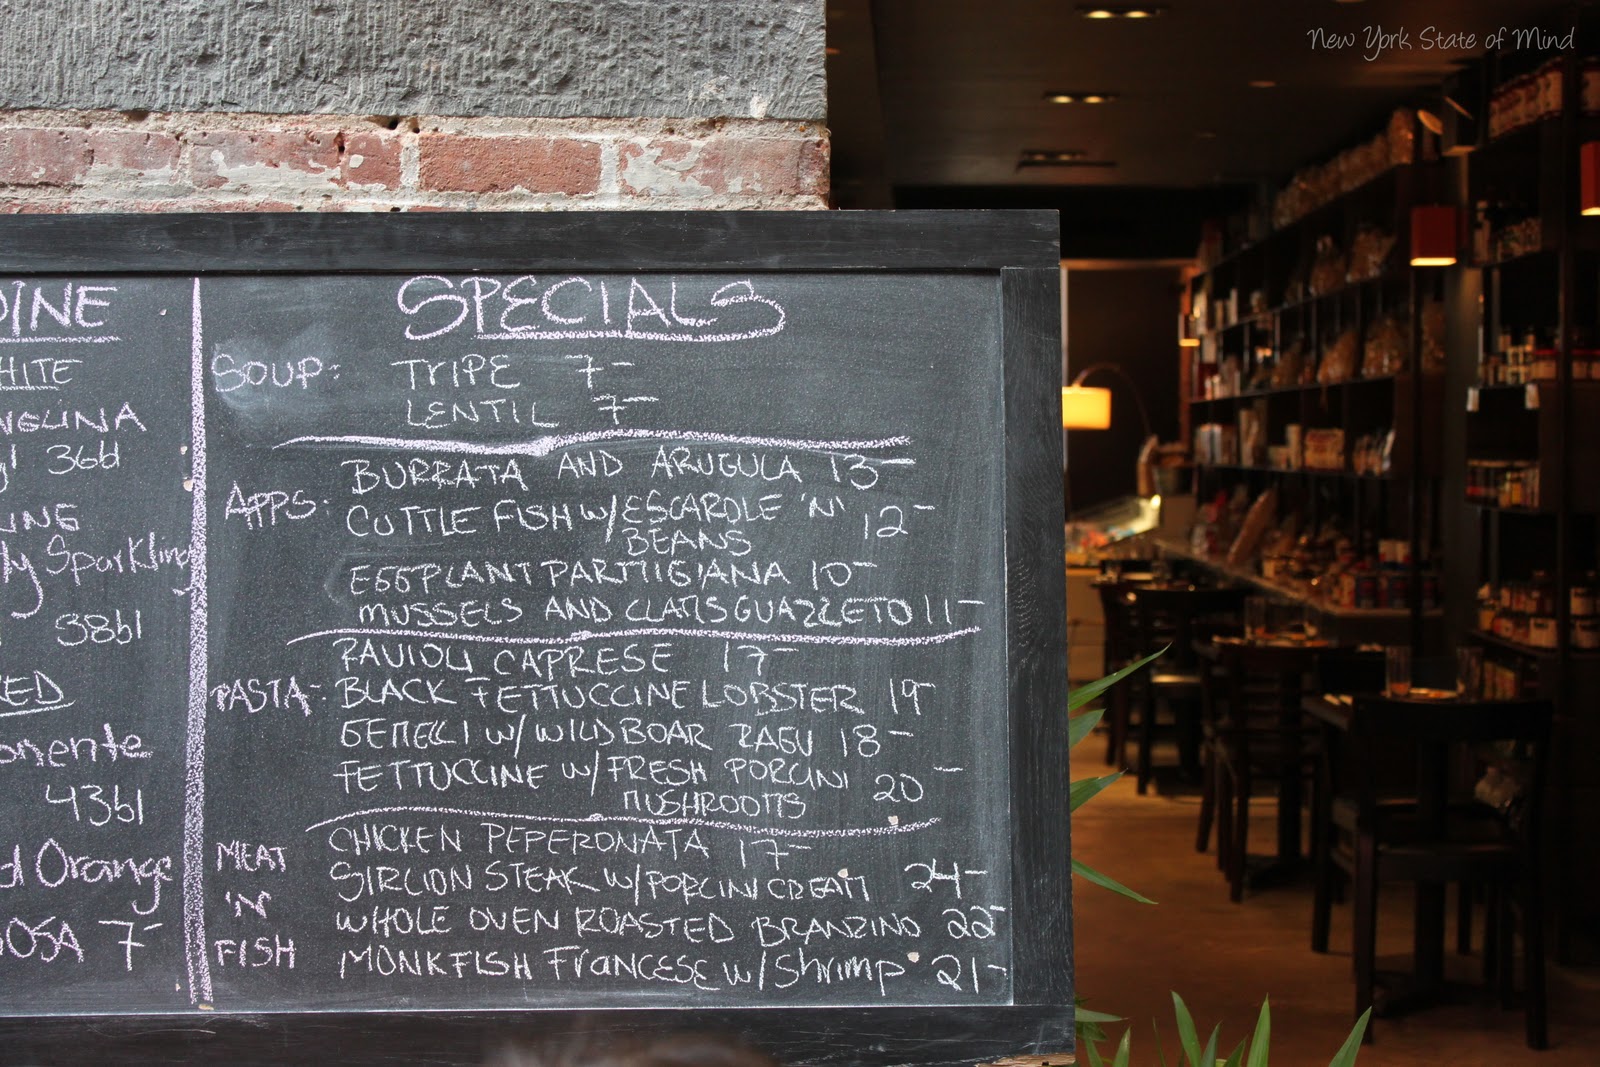 New York State of Mind
WHITE
36bl
Sparkling
38bl
43bl
Orange
7-
SPECIALS
SOUP: TRIPE 7-
LENTIL 7-
APPS: BURRATA AND ARUGULA 13-
CUTTLE FISH W/ESCAROLE 'N' 12-
BEANS
EGGPLANT PARMIGIANA 10-
MUSSELS AND CLAMS GUAZZETO 11-
PASTA- RAVIOLI CAPRESE 17-
BLACK FETTUCCINE LOBSTER 19-
GEMELLI W/ WILD BOAR RAGU 18-
FETTUCCINE W/ FRESH PORCINI 20-
MUSHROOMS
MEAT 'N' FISH
CHICKEN PEPERONATA 17-
SIRLION STEAK W/PORCINI CREAM 24-
WHOLE OVEN ROASTED BRANZINO 22-
MONKFISH FRANCESE W/ Shrimp 21-